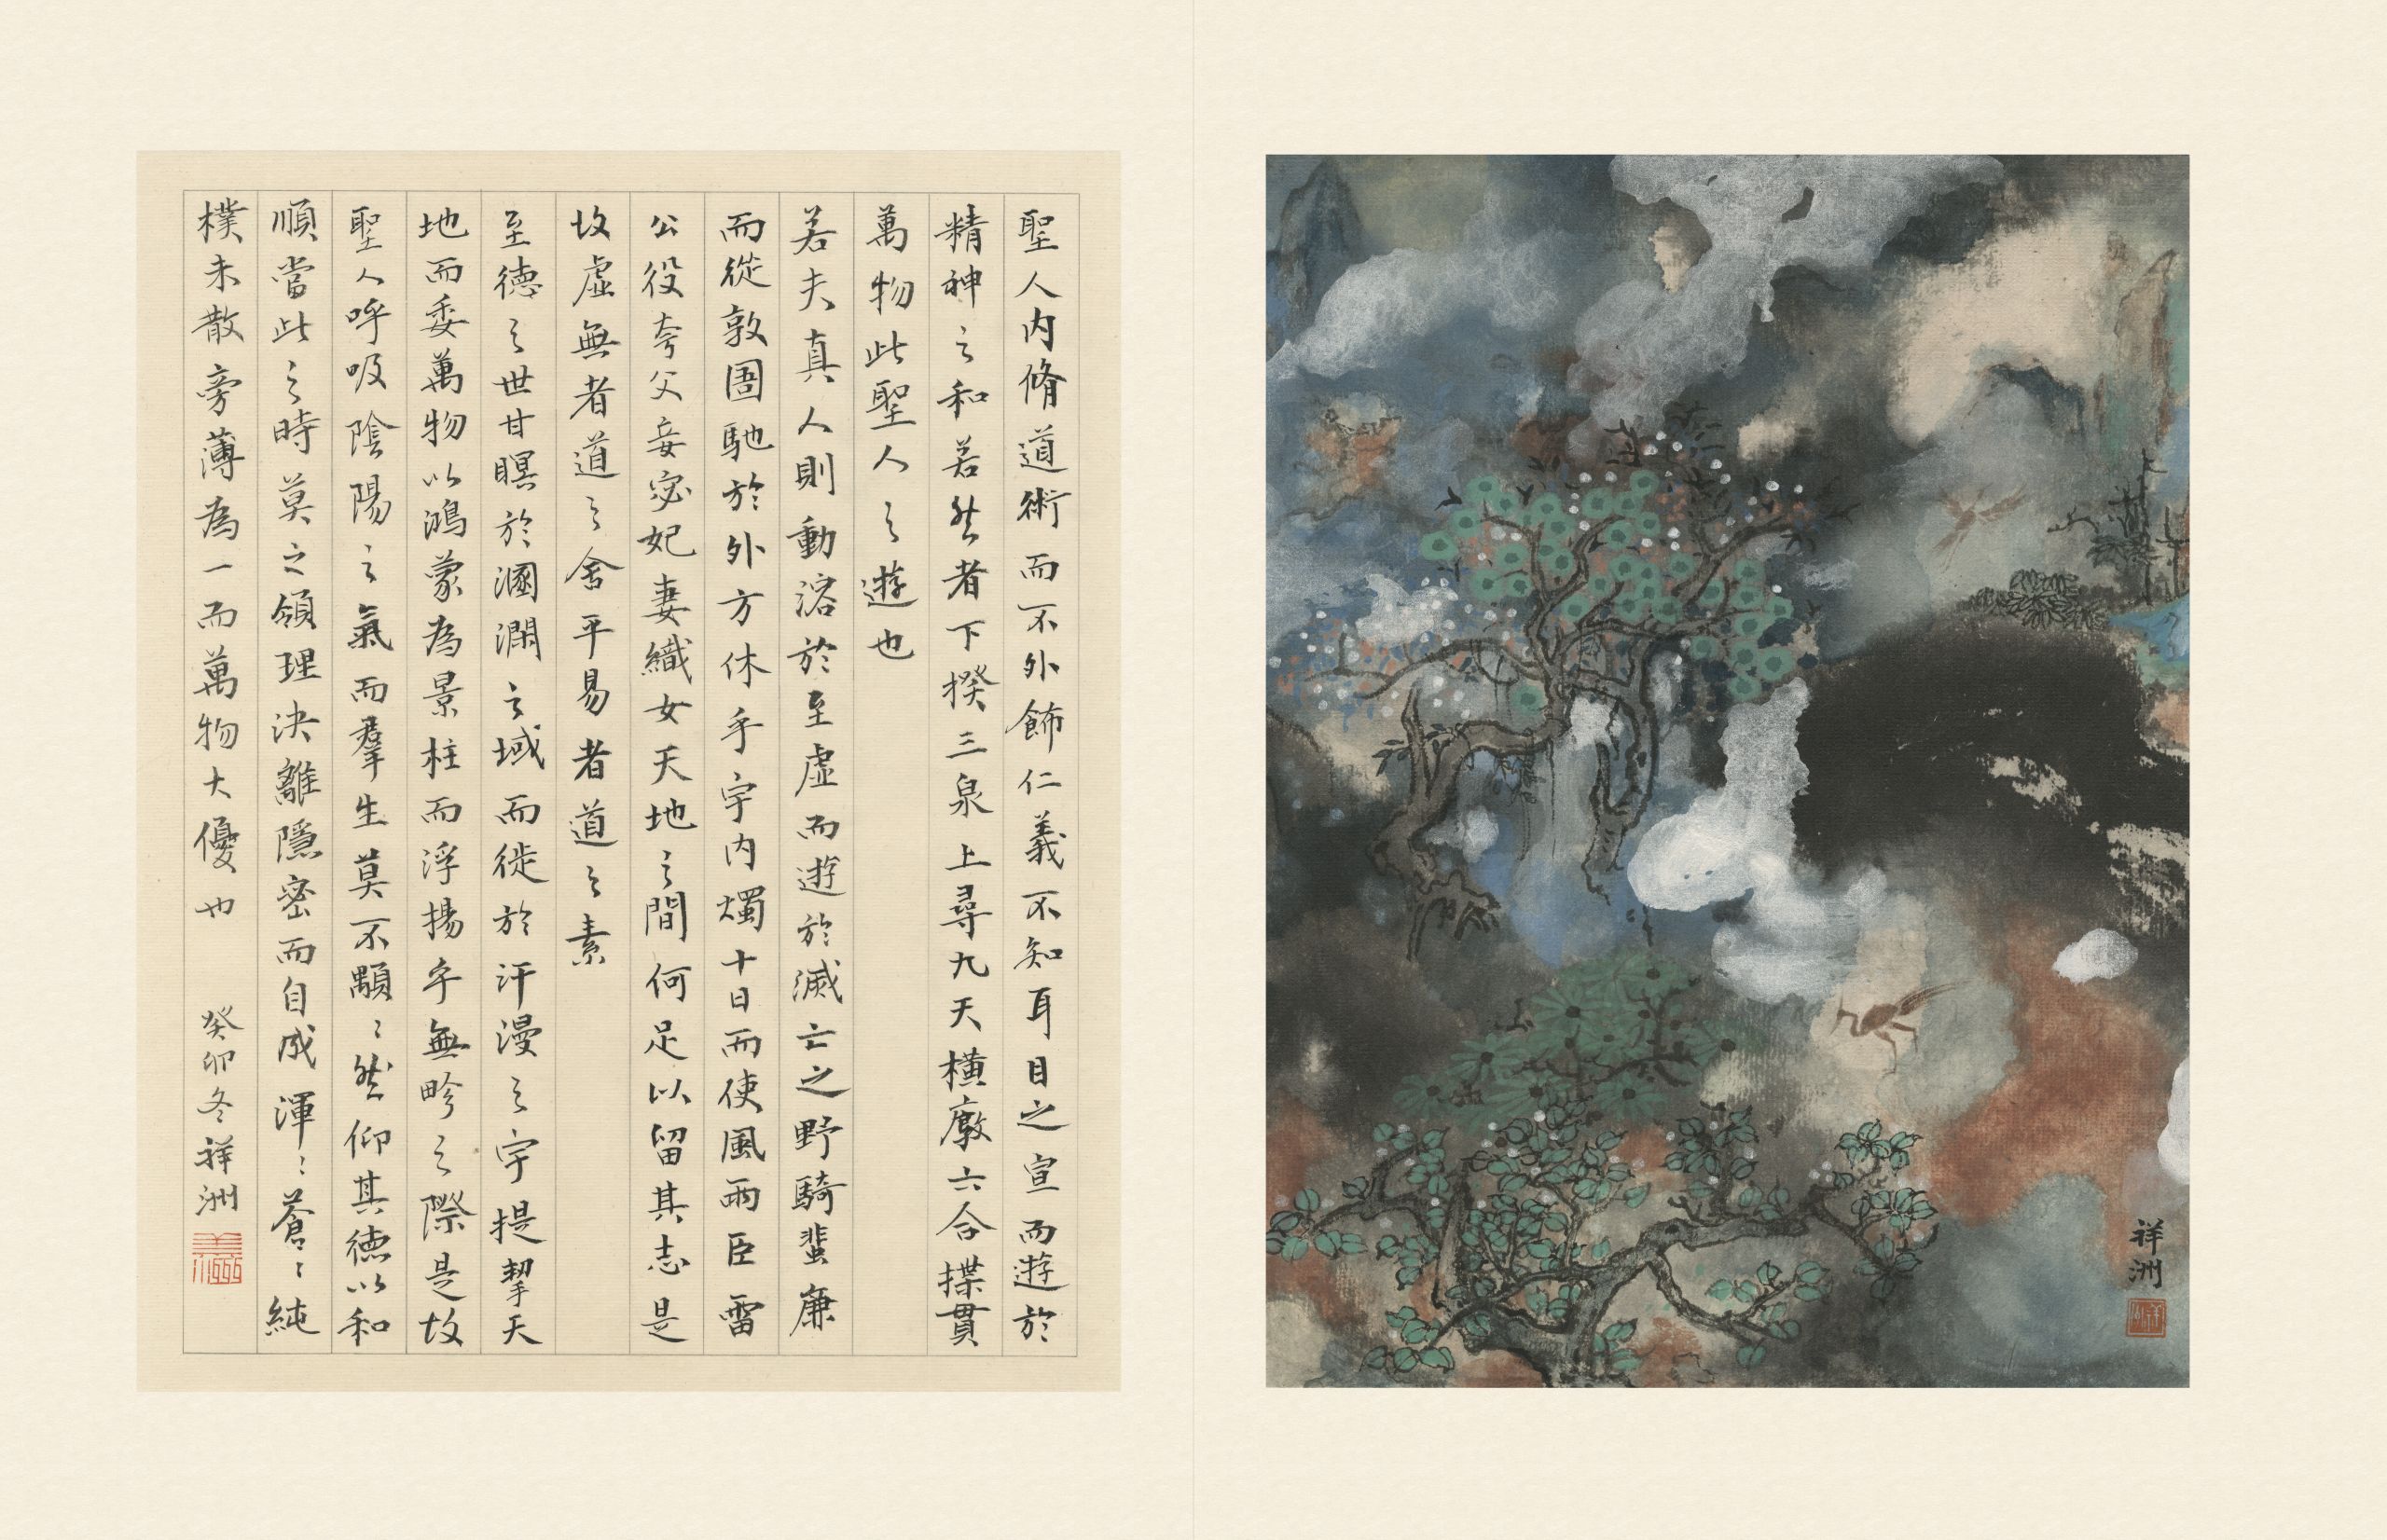 聖人内脩道術而不外飾仁義不知耳目之宣而遊於
精神之和若然者下揆三泉上尋九天橫廓六合揲貫
萬物此聖人之遊也
若夫真人則動溶於至虛而遊於滅亡之野騎蜚廉
而從敦圄馳於外方休乎宇内燭十日而使風雨臣雷
公役夸父妾宓妃妻織女天地之間何足以留其志是
故虛無者道之舍平易者道之素
至德之世甘瞑於溷澖之域而徙於汗漫之宇提挈天
地而委萬物以鴻蒙為景柱而浮揚乎無畛之際是故
聖人呼吸陰陽之氣而羣生莫不顒〻然仰其德以和
順當此之時莫之領理決離隱密而自成渾〻蒼〻純
樸未散旁薄為一而萬物大優也
癸卯冬祥洲
祥洲